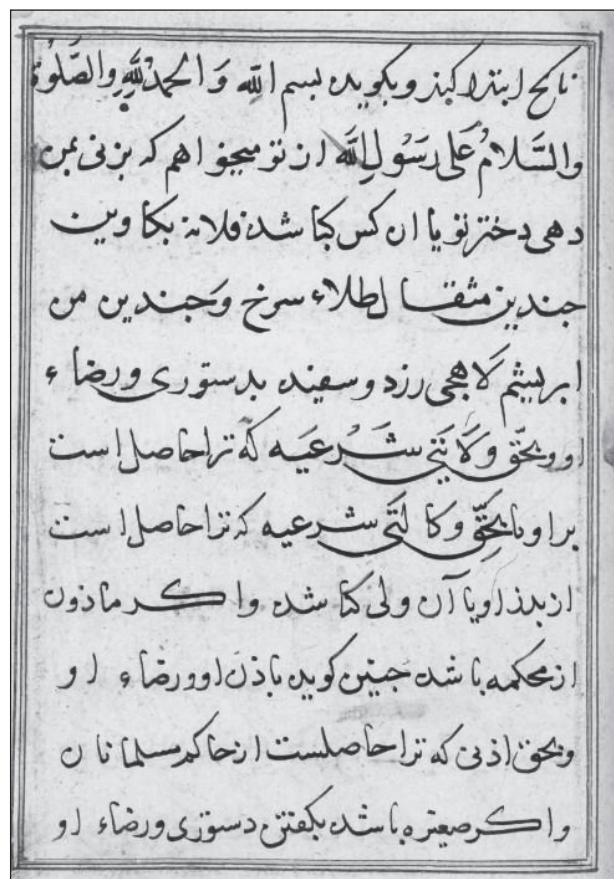 ناکح ابتدا کند و بکوید بسم الله وَ الحمدُ للهِ والصَّلوة
والسَّلامُ عَلی رَسُولِ الله از تو میخواهم که بزنی بمن
دهی دختر تو یا ان کس کبا شد فلانه بکاوین
جندین مثقال طلاء سرخ وَجندین من
ابریشم لاهجی زرد و سفید بدستوری و رضاء
او و بحَق وَلَایَتی شَرعیَه که ترا حاصل است
بر او یا بحَقِّ وکالَتَی شرعیه که ترا حاصل است
از بدر او یا آن ولی کبا شد و اکر ماذون
از محکمه با شد جنین کوید باذن او و رضاء او
و بحق اذنی که ترا حاصلست از حاکم مسلمانان
و اکر صغیره با شد بکفتن دستوری و رضاء او